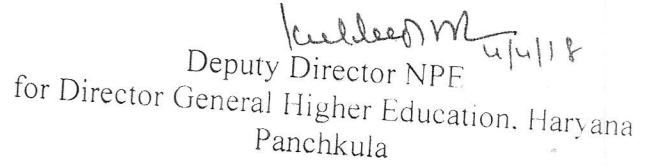 4/4/18
Deputy Director NPE
for Director General Higher Education. Haryana
Panchkula